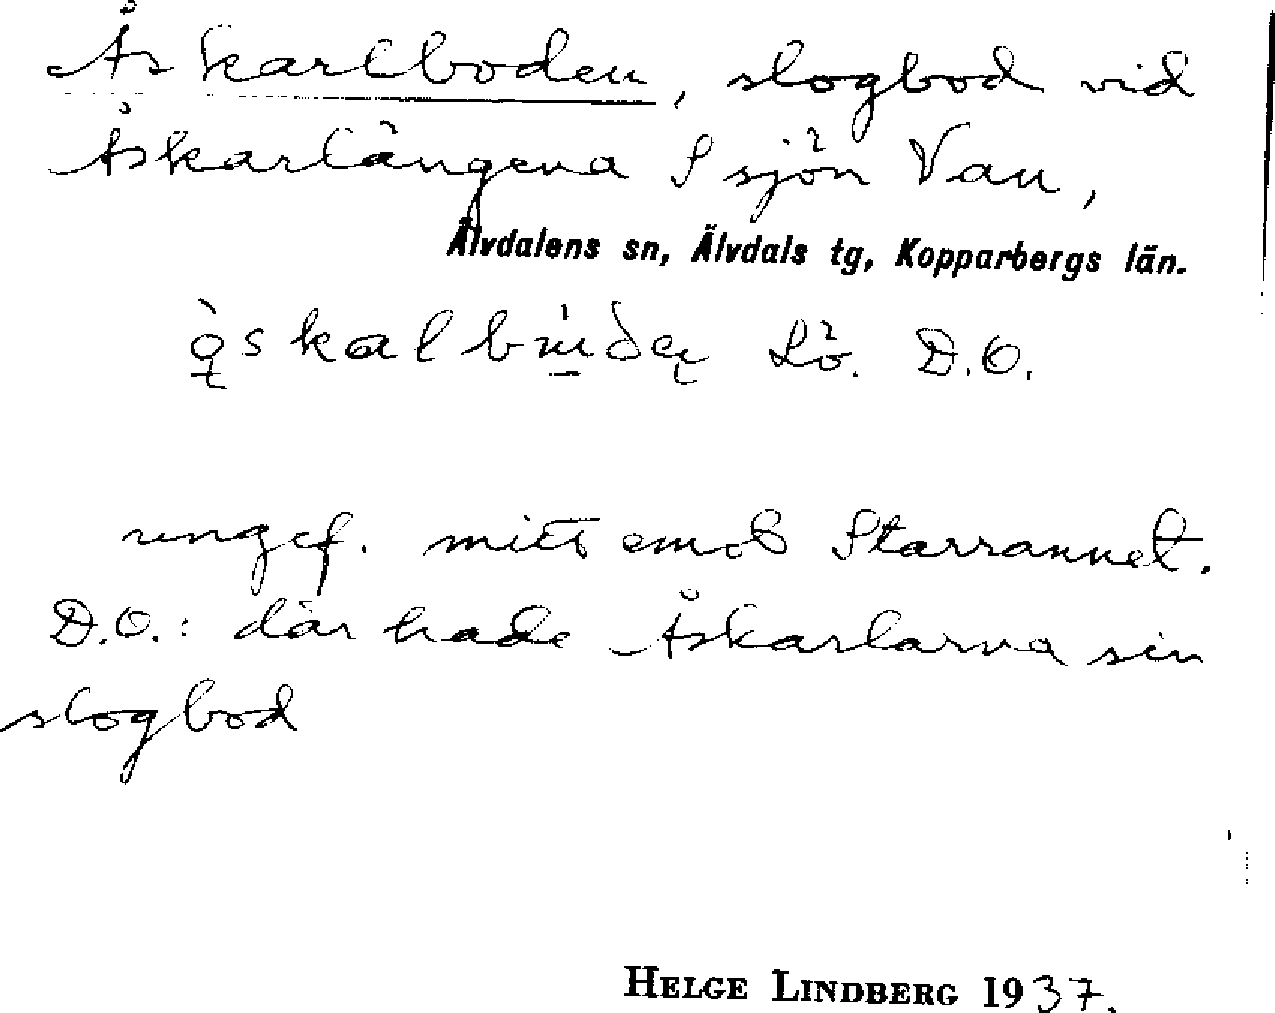 Åskarlboden, slogbod vid
Åskarlängena S sjön Van,
Älvdalens sn, Älvdals tg, Kopparbergs län.
Lö. D.O.
ungef. mitt emot Starrannet.
D.O.: där hade Åskarlarna sin
slogbod
HELGE LINDBERG 1937.